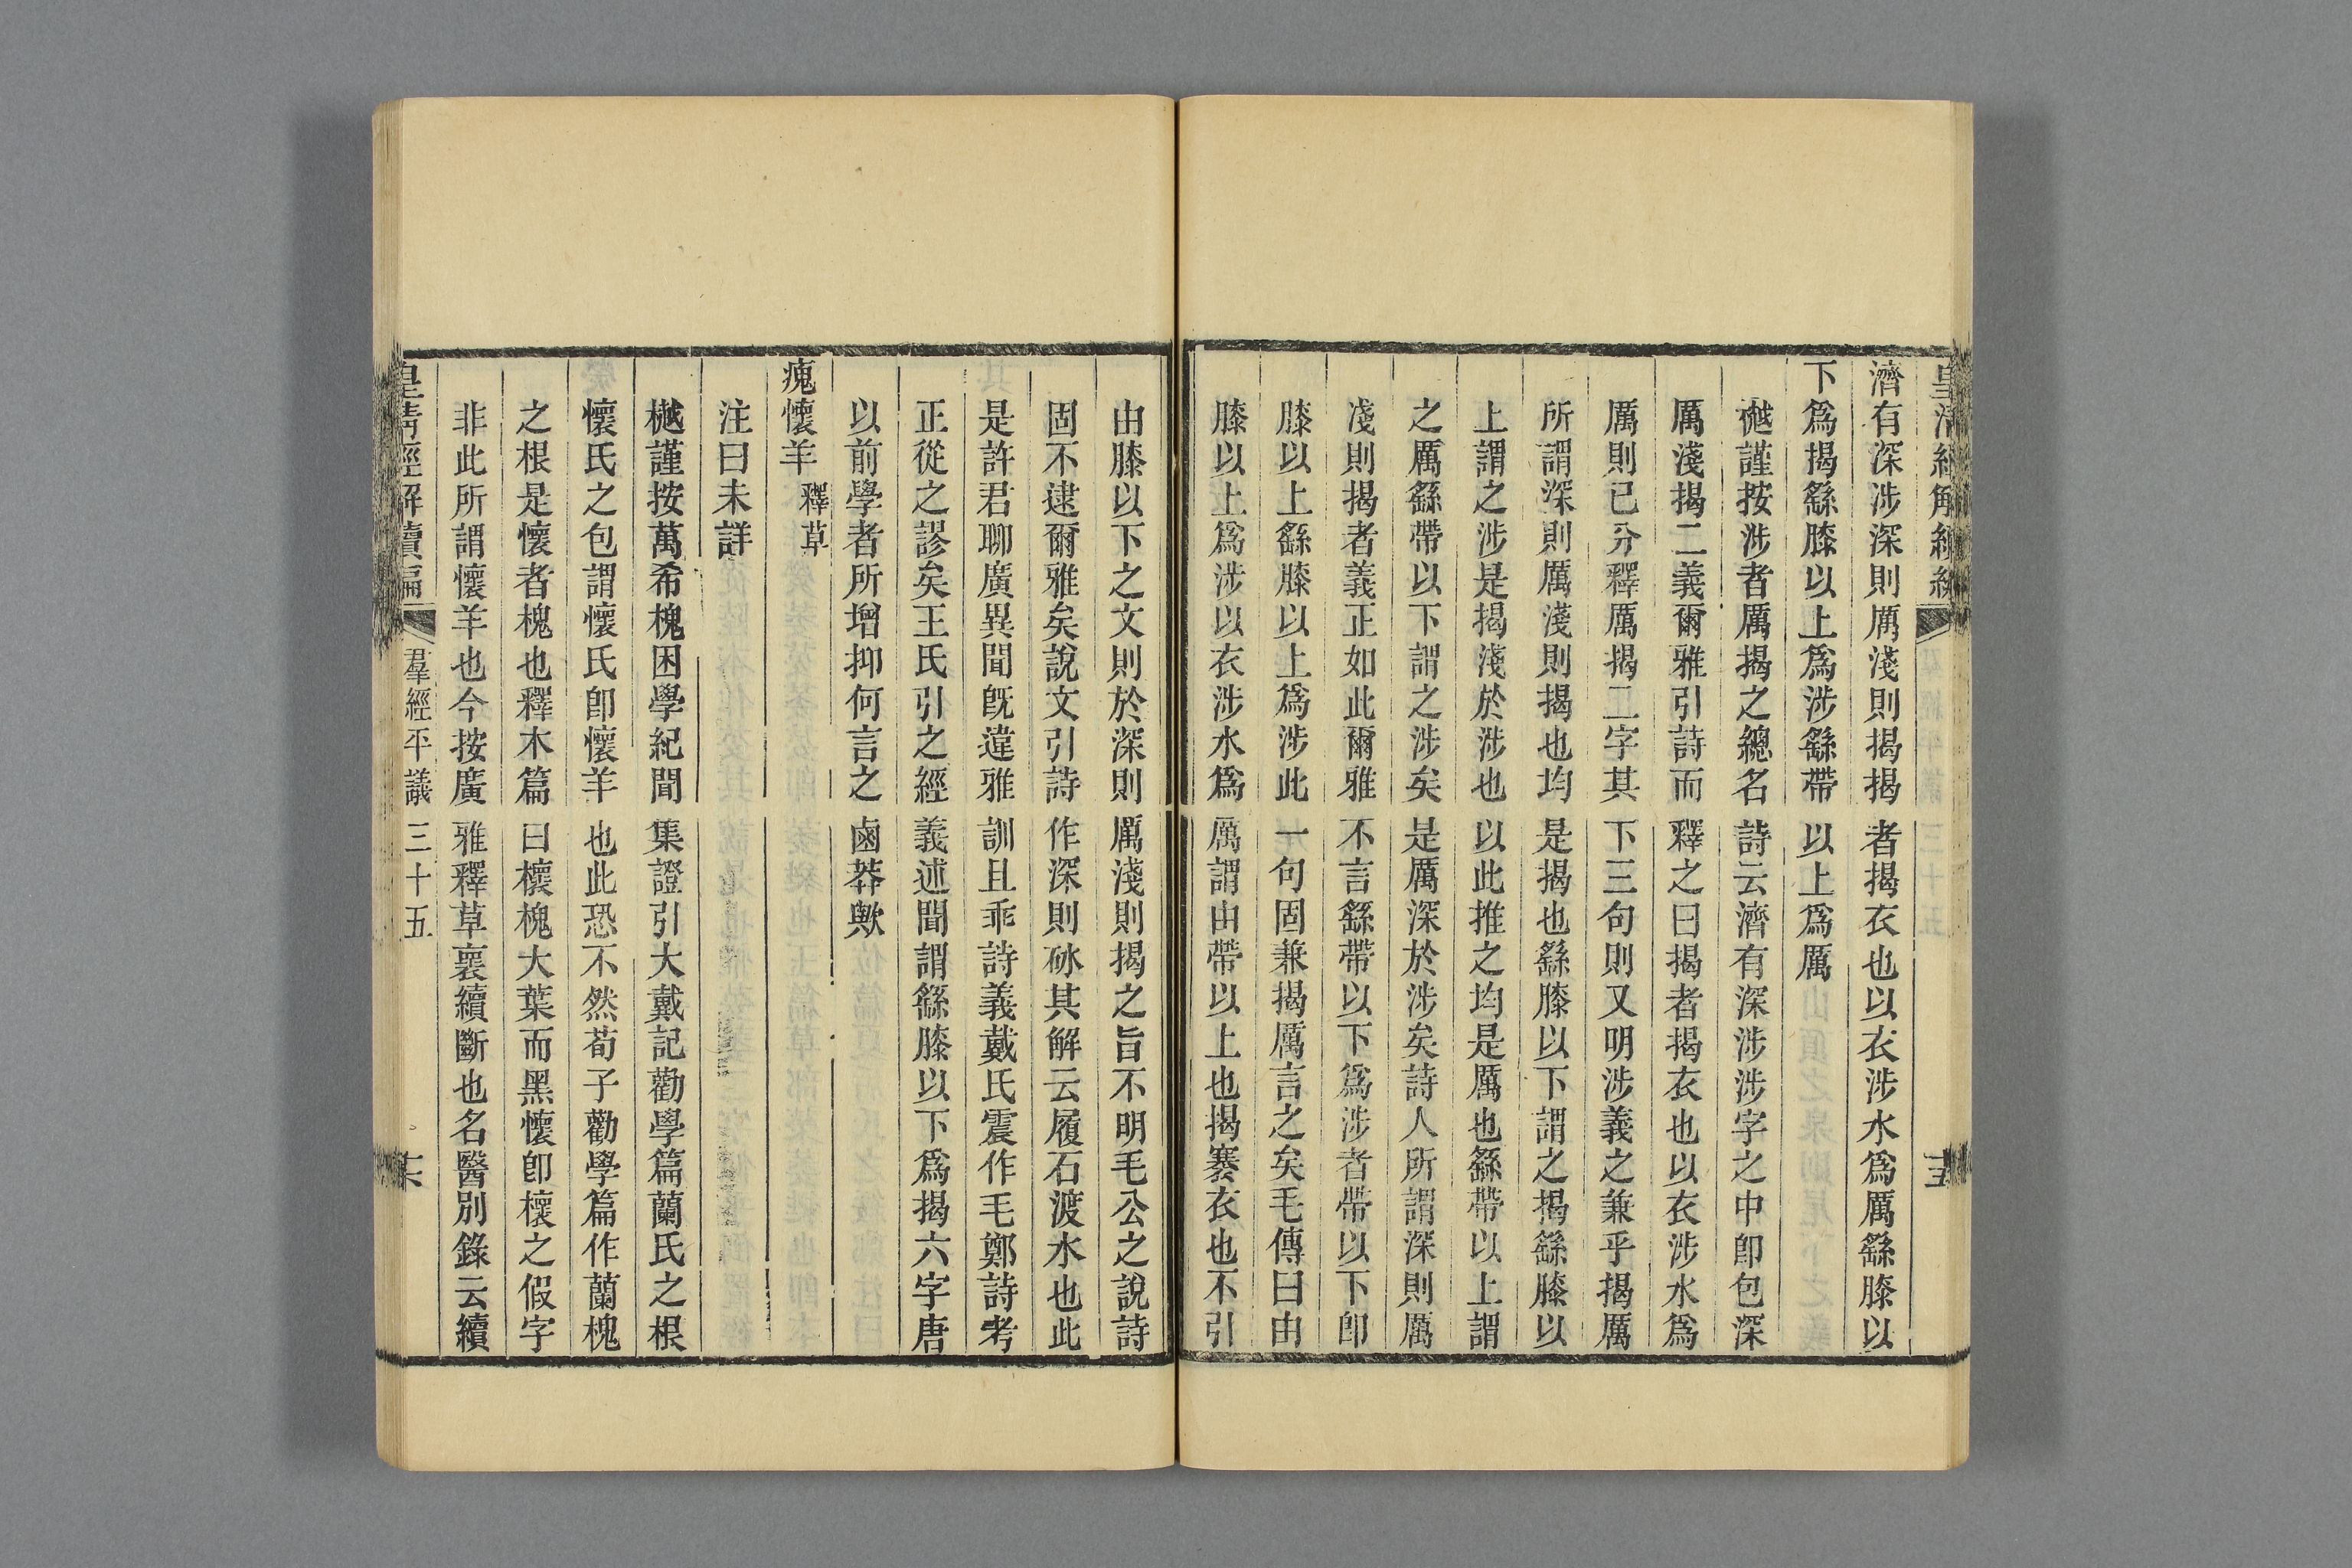 皇清經解續編
濟有深涉深則厲淺則揭揭者揭衣也以衣涉水爲厲繇膝以
下爲揭繇膝以上爲涉繇帶以上爲厲
樾謹按涉者厲揭之總名詩云濟有深涉涉字之中卽包深
厲淺揭二義爾雅引詩而釋之曰揭者揭衣也以衣涉水爲
厲則已分釋厲揭二字其下三句則又明涉義之兼乎揭厲
所謂深則厲淺則揭也均是揭也繇膝以下謂之揭繇膝以
上謂之涉是揭淺於涉也以此推之均是厲也繇帶以上謂
之厲繇帶以下謂之涉矣是厲深於涉矣詩人所謂深則厲
淺則揭者義正如此爾雅不言繇帶以下爲涉者帶以下卽
膝以上繇膝以上爲涉此一句固兼揭厲言之矣毛傳曰由
膝以上爲涉以衣涉水爲厲謂由帶以上也揭褰衣也不引
由膝以下之文則於深則厲淺則揭之旨不明毛公之說詩
固不逮爾雅矣說文引詩作深則砅其解云履石渡水也此
是許君聊廣異聞旣違雅訓且乖詩義戴氏震作毛鄭詩考
正從之謬矣王氏引之經義述聞謂繇膝以下爲揭六字唐
以前學者所增抑何言之鹵莽歟
瘣懷羊 釋草
注曰未詳
樾謹按萬希槐困學紀聞集證引大戴記勸學篇蘭氏之根
懷氏之包謂懷氏卽懷羊也此恐不然荀子勸學篇作蘭槐
之根是懷者槐也釋木篇曰櫰槐大葉而黑懷卽櫰之假字
非此所謂懷羊也今按廣雅釋草褱續斷也名醫別錄云續
皇清經解續編 羣經平議三十五